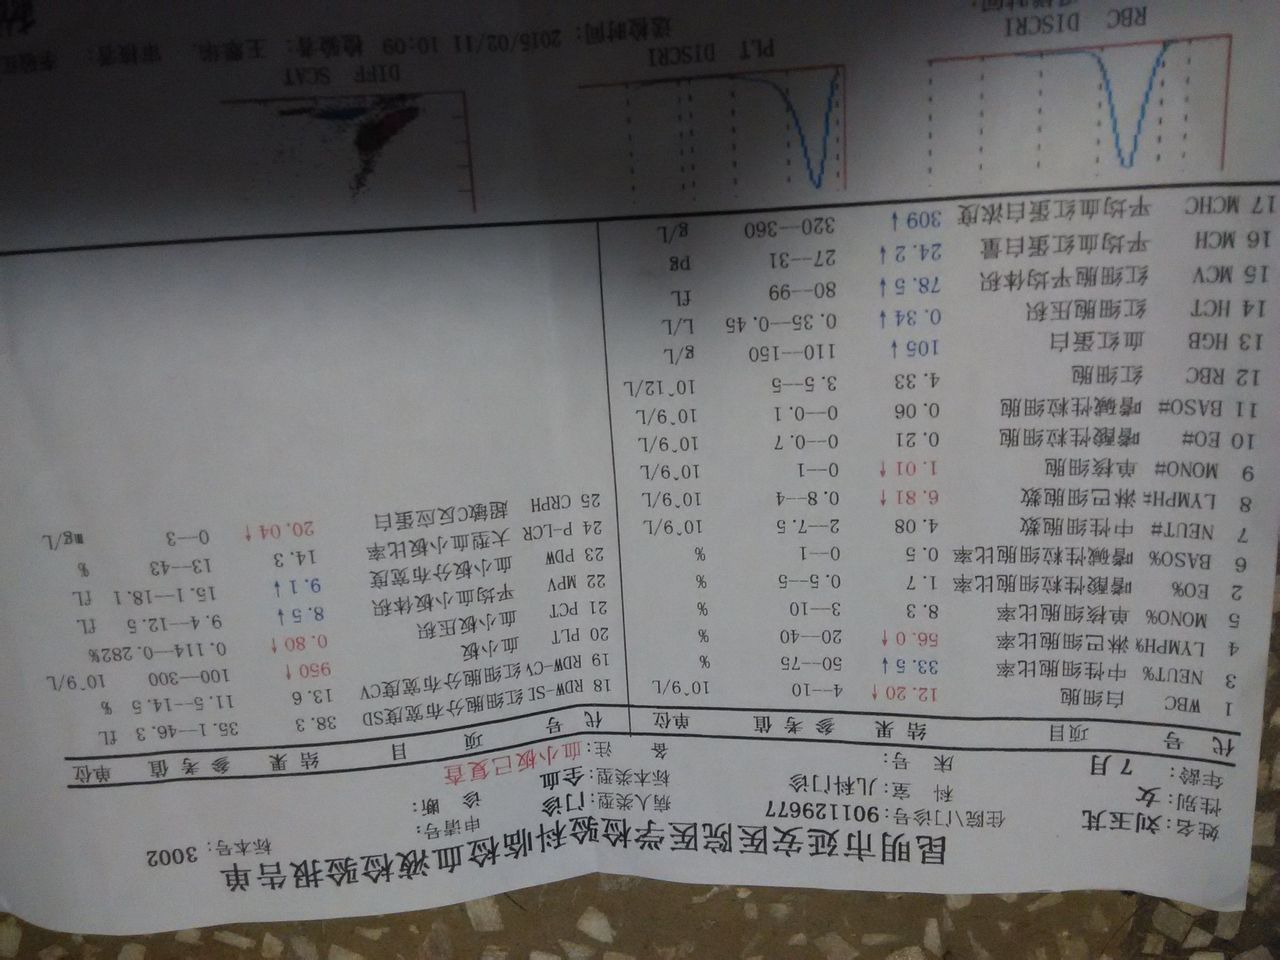 昆明市延安医院医学检验科临检血液检验报告单
标本号: 3002
姓名: 刘玉芃 住院\门诊号: 901129677 申请号:
性别: 女 科 室: 儿科门诊 病人类型: 门诊 诊 断:
年龄: 7月 床 号: 标本类型: 全血
备 注: 血小板已复查
代 号 项目 结 果 参 考 值 单 位
1 WBC 白细胞 12.20↑ 4--10 10^9/L
3 NEUT% 中性细胞比率 33.5↓ 50--75 %
4 LYMPH% 淋巴细胞比率 56.0↑ 20--40 %
5 MONO% 单核细胞比率 8.3 3--10 %
2 EO% 嗜酸性粒细胞比率 1.7 0.5--5 %
6 BASO% 嗜碱性粒细胞比率 0.5 0--1 %
7 NEUT# 中性细胞数 4.08 2--7.5 10^9/L
8 LYMPH# 淋巴细胞数 6.81↑ 0.8--4 10^9/L
9 MONO# 单核细胞 1.01↑ 0--1 10^9/L
10 EO# 嗜酸性粒细胞 0.21 0--0.7 10^9/L
11 BASO# 嗜碱性粒细胞 0.06 0--0.1 10^9/L
12 RBC 红细胞 4.33 3.5--5 10^12/L
13 HGB 血红蛋白 105↓ 110--150 g/L
14 HCT 红细胞压积 0.34↓ 0.35--0.45 L/L
15 MCV 红细胞平均体积 78.5↓ 80--99 fL
16 MCH 平均血红蛋白量 24.2↓ 27--31 pg
17 MCHC 平均血红蛋白浓度 309↓ 320--360 g/L
代 号 项 目 结 果 参 考 值 单位
18 RDW-SD 红细胞分布宽度SD 38.3 35.1--46.3 fL
19 RDW-CV 红细胞分布宽度CV 13.6 11.5--14.5 %
20 PLT 血小板 950↑ 100--300 10^9/L
21 PCT 血小板压积 0.80↑ 0.114--0.282%
22 MPV 平均血小板体积 8.5↓ 9.4--12.5 fL
23 PDW 血小板分布宽度 9.1↓ 15.1--18.1 fL
24 P-LCR 大型血小板比率 14.3 13--43 %
25 CRPH 超敏C反应蛋白 20.04↑ 0--3 mg/L
RBC DISCRI
PLT DISCRI
DIFF SCAT
送检时间: 2015/02/11 10:09 检验者: 审核者: